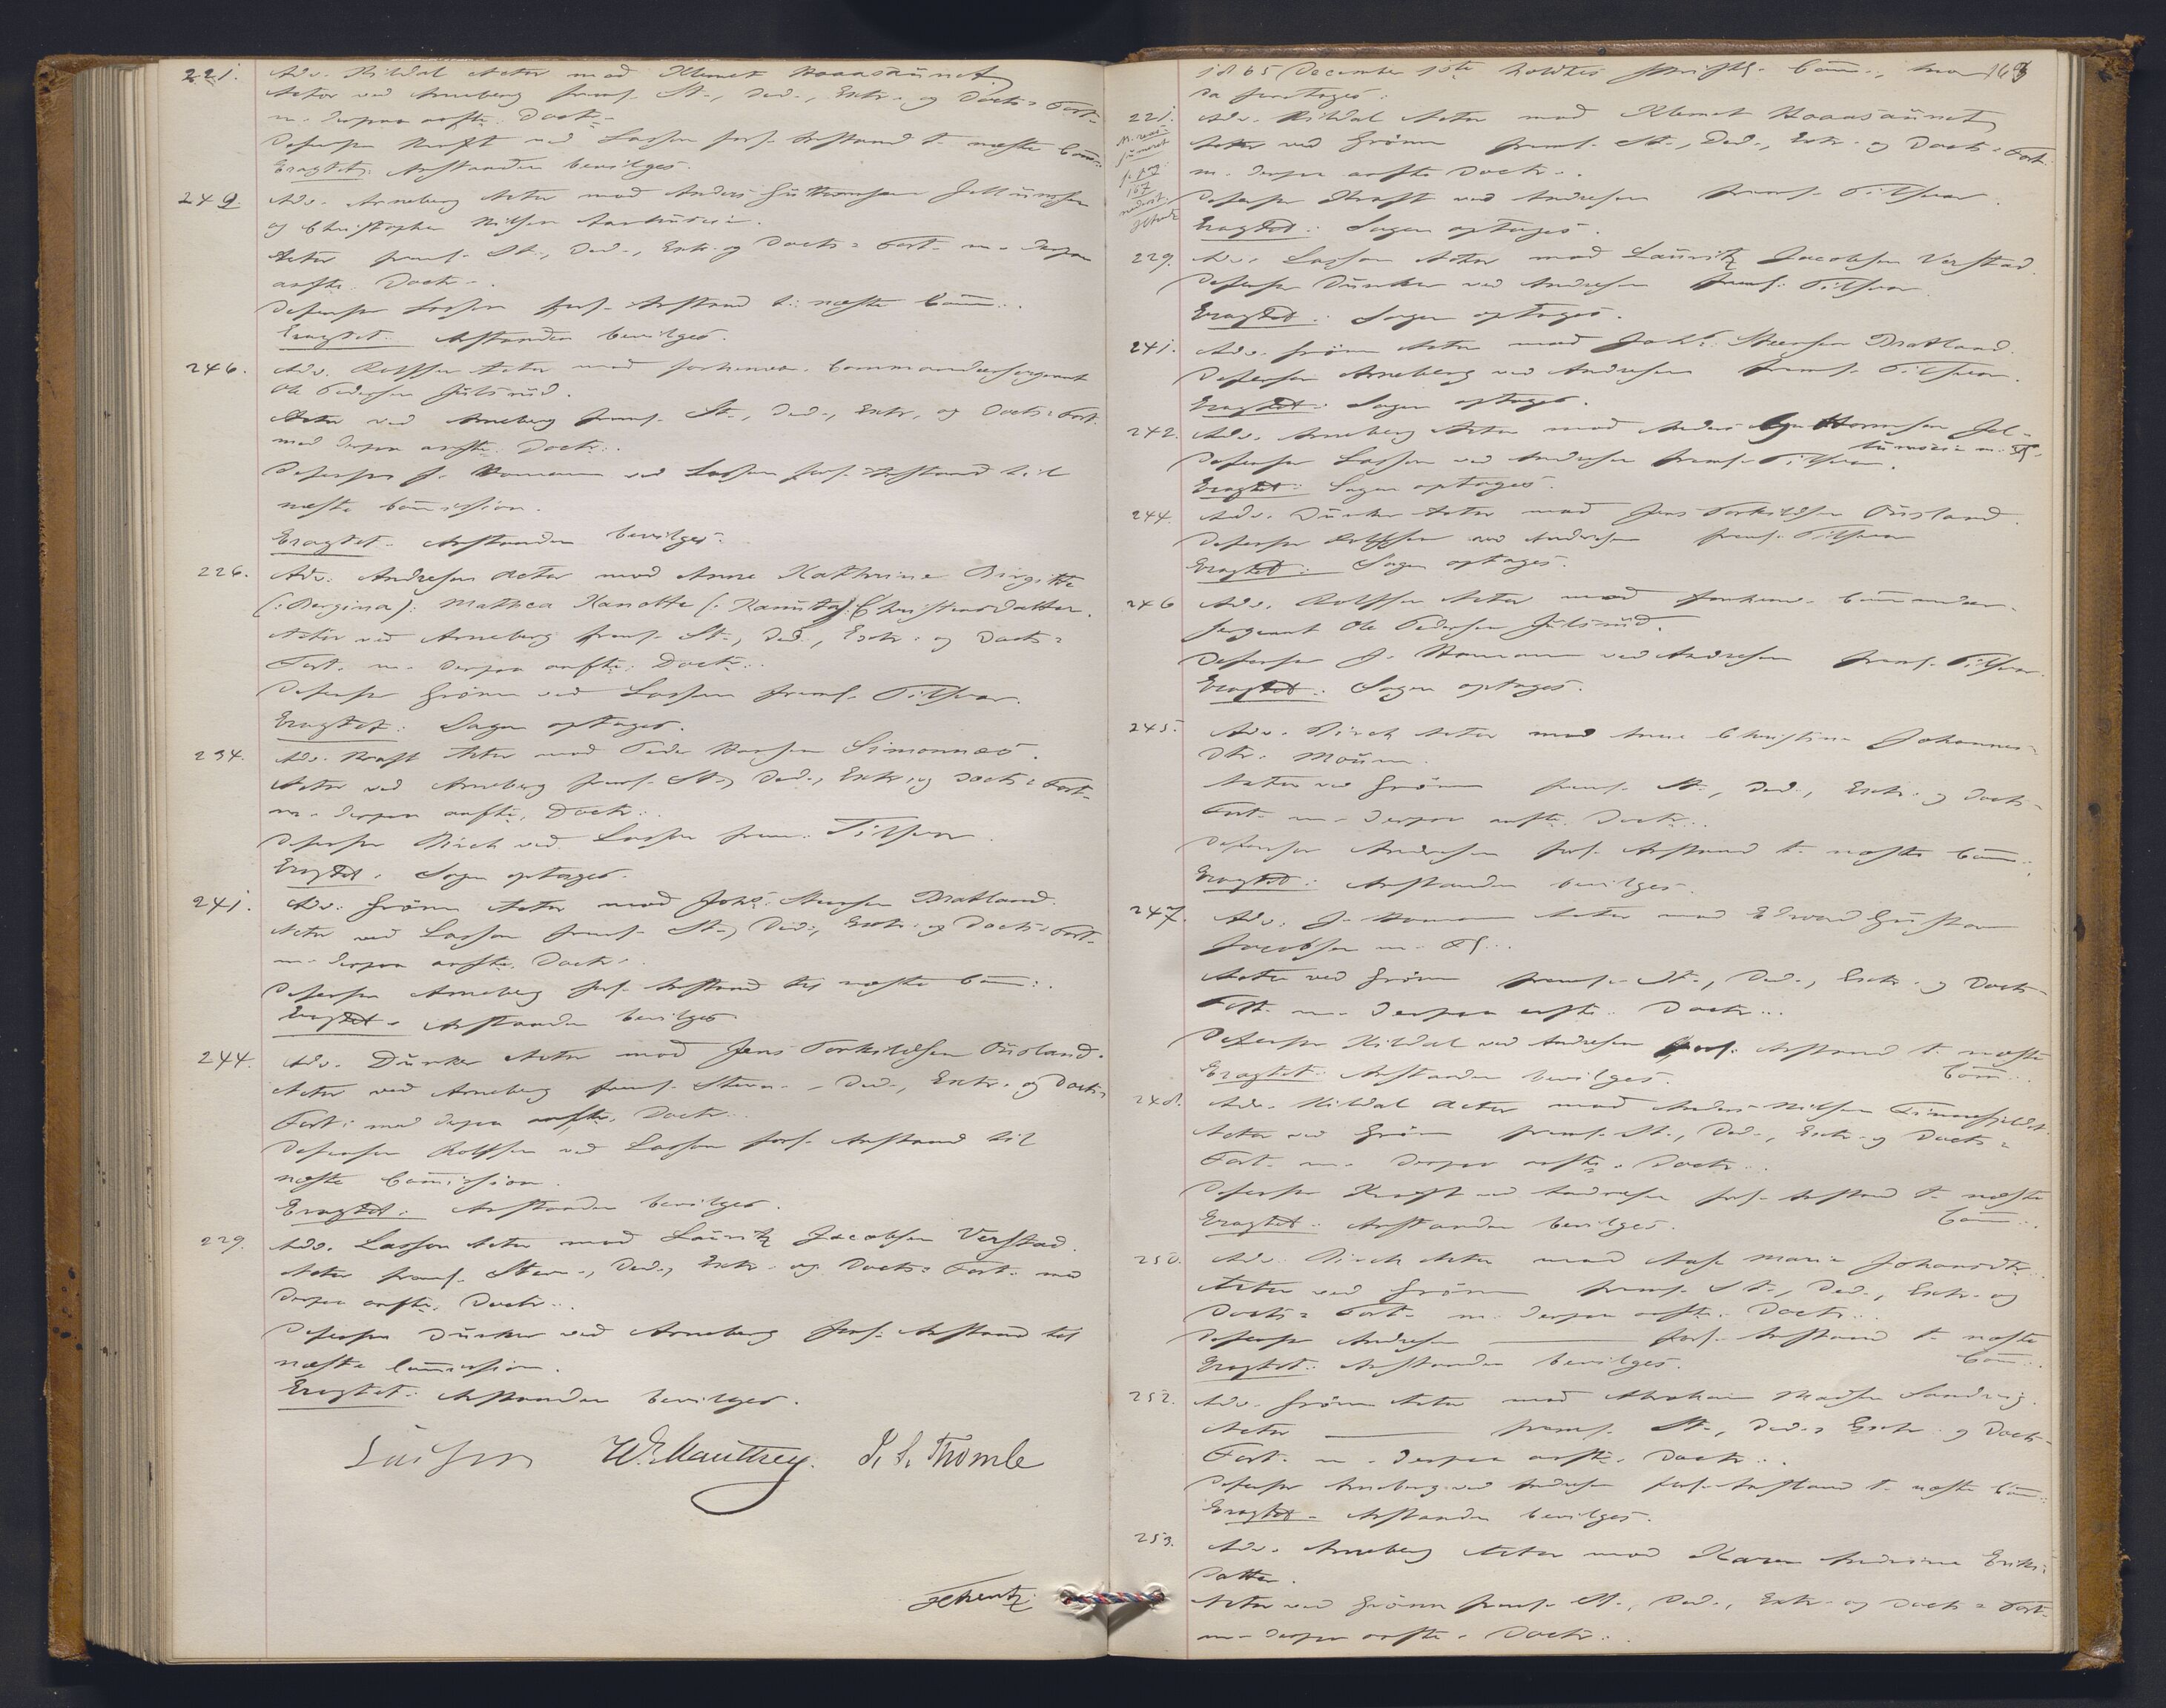 221. Adv. Kildal Actor mod Klemet Haaasaunet
Actor ved Arneberg freml. St., Ded., Extr. og Doct: Fort.
m. derpaa anførte Doctr.
Defensor Kraft ved Lasson forl. Anstand t. næste Comm:
Eragtet: Anstanden bevilges.
242. Adv. Arneberg Actor mod Anders Guttormsen
og Christopher Nilsen
Actor freml. St., Ded., Extr. og Doct: Fort. m. derpaa
anførte Doctr.
Defensor Lasson forl. Anstand t. næste Comm:.
Eragtet: Anstanden bevilges.
246. Adv. Rolffsen Actor mod forhenv. Commandeersergeant
Ole Pedersen Julsrud.
Actor ved Arneberg freml. St., Ded., Extr. og Doct: Fort.
med derpaa anførte Doctr:.
Defensor J. Homann ved Lasson forl. Anstand til
næste Commission.
Eragtet: Anstanden bevilges.
226. Adv. Andresen Actor mod Anne Kathrine Birgitte
(: Bergina): Mathea Hanotta (: Hanuta:) Christensdatter.
Actor ved Arneberg freml. St., Ded., Extr: og Doct:
Fort. m. derpaa anførte Doctr:.
Defensor Grönn ved Lasson freml. Tilsvar.
Eragtet: Sagen optages.
234. Adv. Kraft Actor mod Peder Hansen Simonnæs.
Actor ved Arneberg freml. St., Ded., Extr. og Doct: Fort.
m. derpaa anførte Doctr:.
Defensor Birch ved Lasson frem. Tilsvar.
Eragtet: Sagen optages.
241. Adv. Grönn Actor mod Johs. Steensen Bratland.
Actor ved Lasson freml. St., Ded., Extr: og Doct: Fort.
m. derpaa anførte Doctr.
Defensor Arneberg forl. Anstand til næste Comm:.
Eragtet: Anstanden bevilges.
244. Adv. Dunker Actor mod Jens Torkildsen Ousland.
Actor ved Arneberg freml. Stevn., Ded., Extr. og Doct:
Fort: med derpaa anførte Doctr:.
Defensor Rolffsen ved Lasson forl. Anstand til
næste Commission.
Eragtet: Anstanden bevilges.
229. Adv. Lasson Actor mod Lauritz Jacobsen Verstad.
Actor freml. Stevn., Ded., Extr. og Doct: Fort. med
derpaa anførte Doctr:.
Defensor Dunker ved Arneberg forl. Anstand til
næste Commission.
Eragtet: Anstanden bevilges.
Lasson W. Manthey. P. C. Thomle
Schentz
1865 December 1ste holdtes skriftl. Comm:, hvor 167
da foretoges:
221. Adv. Kildal Actor mod Klemet Haaasaunet
Actor ved Grönn freml. St., Ded., Extr. og Doct: Fort.
m. derpaa anførte Doctr:.
Defensor Kraft ved Andresen freml. Tilsvar.
Eragtet: Sagen optages.
229. Adv. Lasson Actor mod Lauritz Jacobsen Verstad.
Defensor Dunker ved Andresen freml. Tilsvar.
Eragtet: Sagen optages.
241. Adv. Grönn Actor mod Johs. Steensen Bratland.
Defensor Arneberg ved Andresen freml. Tilsvar.
Eragtet: Sagen optages.
242. Adv. Arneberg Actor mod Anders Guttormsen
Defensor Lasson ved Andresen freml. Tilsvar.
Eragtet: Sagen optages.
244. Adv. Dunker Actor mod Jens Torkildsen Ousland.
Defensor Rolffsen ved Andresen freml. Tilsvar
Eragtet: Sagen optages.
246 Adv. Rolffsen Actor mod forhenv. Commandeer-
sergeant Ole Pedersen Julsrud.
Defensor J. Homann ved Andresen freml. Tilsvar.
Eragtet: Sagen optages.
245. Adv. Birch Actor mod Anne Christine Johannes-
dtr. Mouin.
Actor ved Grönn freml. St., Ded., Extr. og Doct:
Fort. m. derpaa anførte Doctr:.
Defensor Andresen forl. Anstand t. næste Comm:
Eragtet: Anstanden bevilges.
247. Adv. J. Homann Actor mod Edvard Gustav
Jacobsen m. Fl:.
Actor ved Grönn freml. St., Ded., Extr. og Doct:
Fort. m. derpaa anførte Doctr:.
Defensor Kildal ved Andresen forl. Anstand t. næste
Eragtet: Anstanden bevilges. Comm:.
248. Adv. Kildal Actor mod Anders Nilsen Finnefjeldet.
Actor ved Grönn freml. St., Ded., Extr. og Doct:
Fort. m. derpaa anførte Doctr:.
Defensor Kraft ved Andresen forl. Anstand t. næste
Eragtet: Anstanden bevilges. Comm:.
250. Adv. Birch Actor mod Aase Marie Johansdtr.
Actor ved Grönn freml. St., Ded., Extr. og
Doct: Fort. m. derpaa anførte Doctr:.
Defensor Andresen forl. Anstand t. næste
Eragtet: Anstanden bevilges. Comm:.
252. Adv. Grönn Actor mod Abraham Madsen Sandvig.
Actor freml. St., Ded., Extr. og Doct:
Fort. m. derpaa anførte Doctr:.
Defensor Arneberg ved Andresen forl. Anstand t. næste Comm:
Eragtet: Anstanden bevilges.
253. Adv. Arneberg Actor mod Karen Andrine Eriks-
datter.
Actor ved Grönn freml. St., Ded., Extr. og Doct: Fort.
m. derpaa anførte Doctr:.